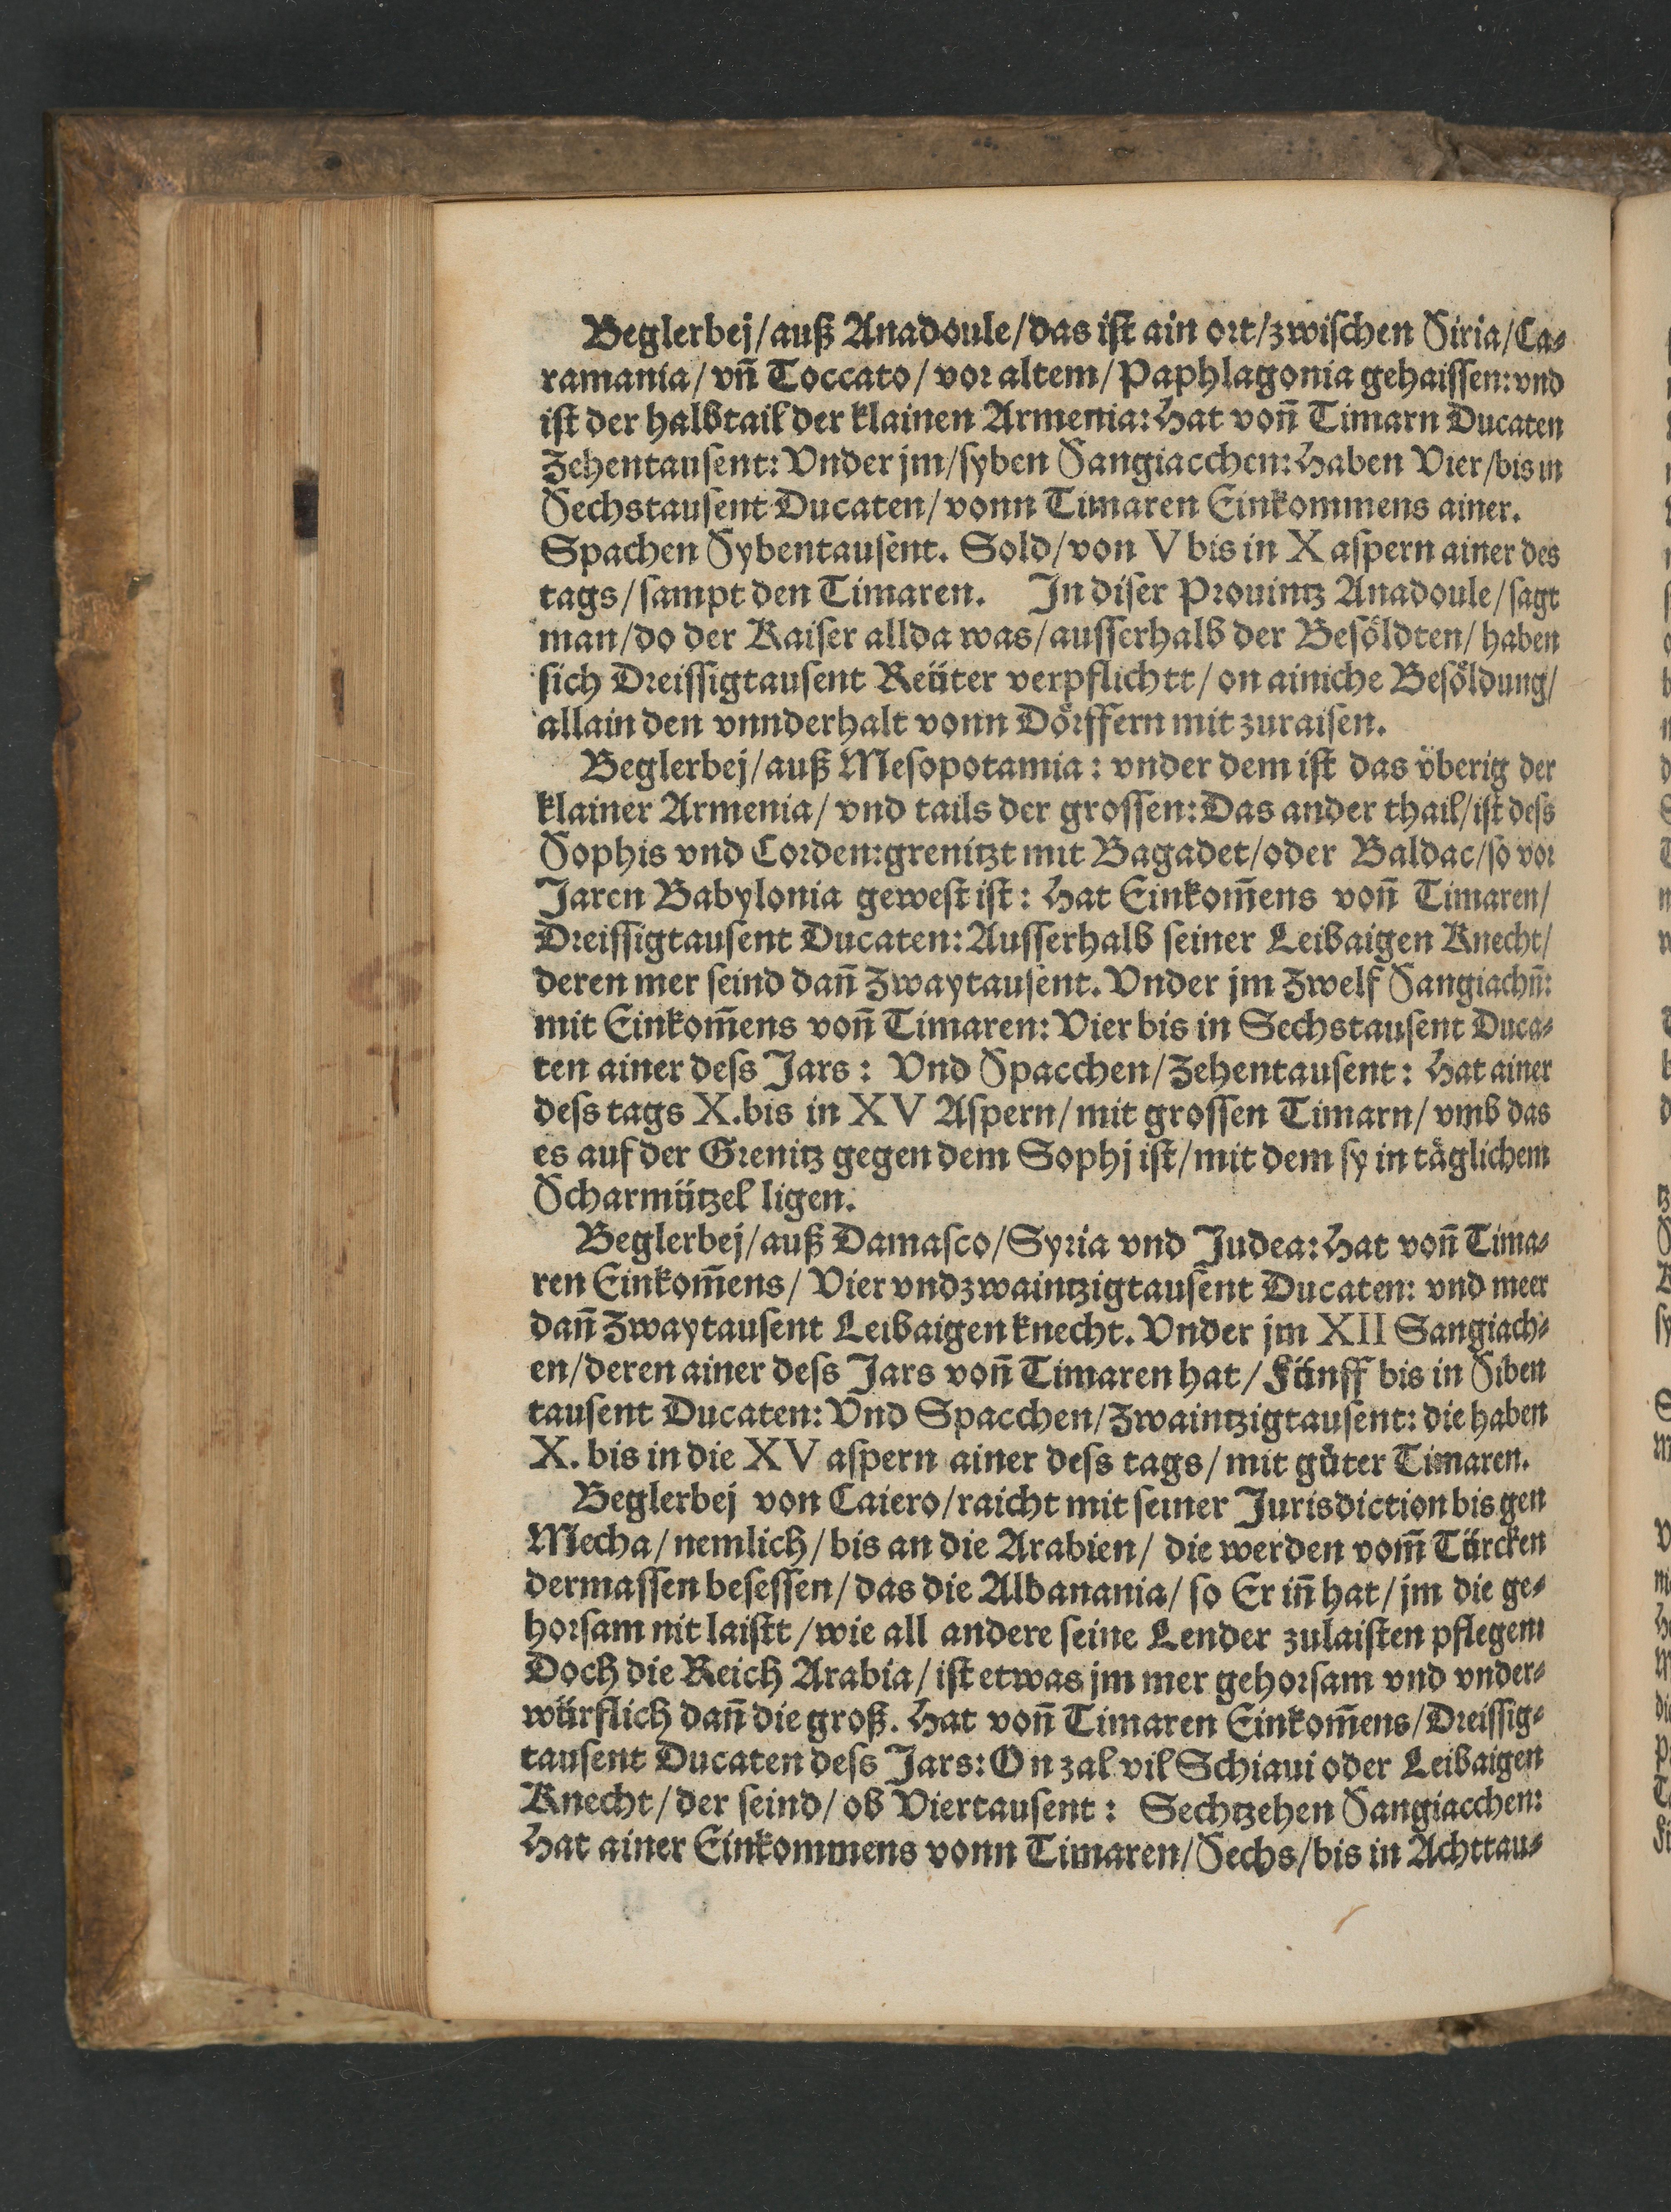 Beglerbej/auß Anadoule/das iſt ain ort/zwiſchen Siria/Ca⸗
ramania/vñ Toccato/vor altem/Paphlagonia gehaiſſen:vnd
iſt der halbtail der klainen Armenia: Hat voñ Timarn Ducaten
Zehentauſent: Vnder jm/ſyben Sangiacchen: Haben Vier/bis in
Sechstauſent Ducaten/vonn Timaren Einkommens ainer.
Spachen Sybentauſent. Sold/von V bis in X aſpern ainer des
tags/ſampt den Timaren. In diſer Prouintz Anadoule/ſagt
man/do der Kaiſer allda was/auſſerhalb der Beſöldten/haben
ſich Dreiſſigtauſent Reüter verpflichtt/on ainiche Beſöldung/
allain den vnnderhalt vonn Dörffern mit zuraiſen.
Beglerbej/auß Meſopotamia: vnder dem iſt das vͤberig der
klainer Armenia/vnd tails der groſſen: Das ander thail/iſt deſs
Sophis vnd Corden:grenitzt mit Bagadet/oder Baldac/ſo vor
Jaren Babylonia geweſt iſt: Hat Einkom̃ens voñ Timaren/
Dreiſſigtauſent Ducaten: Auſſerhalb ſeiner Leibaigen Knecht/
deren mer ſeind dañ Zwaytauſent. Vnder jm Zwelf Sangiachñ:
mit Einkom̃ens voñ Timaren: Vier bis in Sechstauſent Duca⸗
ten ainer deſs Jars: Vnd Spacchen/Zehentauſent: Hat ainer
deſs tags X.bis in XV Aſpern/mit groſſen Timarn/vmb das
es auf der Grenitz gegen dem Sophj iſt/mit dem ſy in täglichem
Scharmützel ligen.
Beglerbej/auß Damaſco/Syria vnd Judea: Hat voñ Tima⸗
ren Einkom̃ens/Vier vndzwaintzigtauſent Ducaten: vnd meer
dañ Zwaytauſent Leibaigen knecht. Vnder jm XII Sangiach⸗
en/deren ainer deſs Jars voñ Timaren hat/Fünff bis in Siben
tauſent Ducaten: Vnd Spacchen/Zwaintzigtauſent: die haben
X. bis in die XV aſpern ainer deſs tags/mit guͤter Timaren.
Beglerbej von Caiero/raicht mit ſeiner Jurisdiction bis gen
Mecha/nemlich/bis an die Arabien/die werden vom̃ Türcken
dermaſſen beſeſſen/das die Albanania/ſo Er iñ hat/jm die ge⸗
horſam nit laiſtt/wie all andere ſeine Lender zulaiſten pflegem
Doch die Reich Arabia/iſt etwas jm mer gehorſam vnd vnder⸗
würflich dañ die groß. Hat voñ Timaren Einkom̃ens/Dreiſſig⸗
tauſent Ducaten deſs Jars: On zal vil Schiaui oder Leibaigen
Knecht/der ſeind/ob Viertauſent: Sechtzehen Sangiacchen:
Hat ainer Einkommens vonn Timaren/Sechs/bis in Achttau⸗